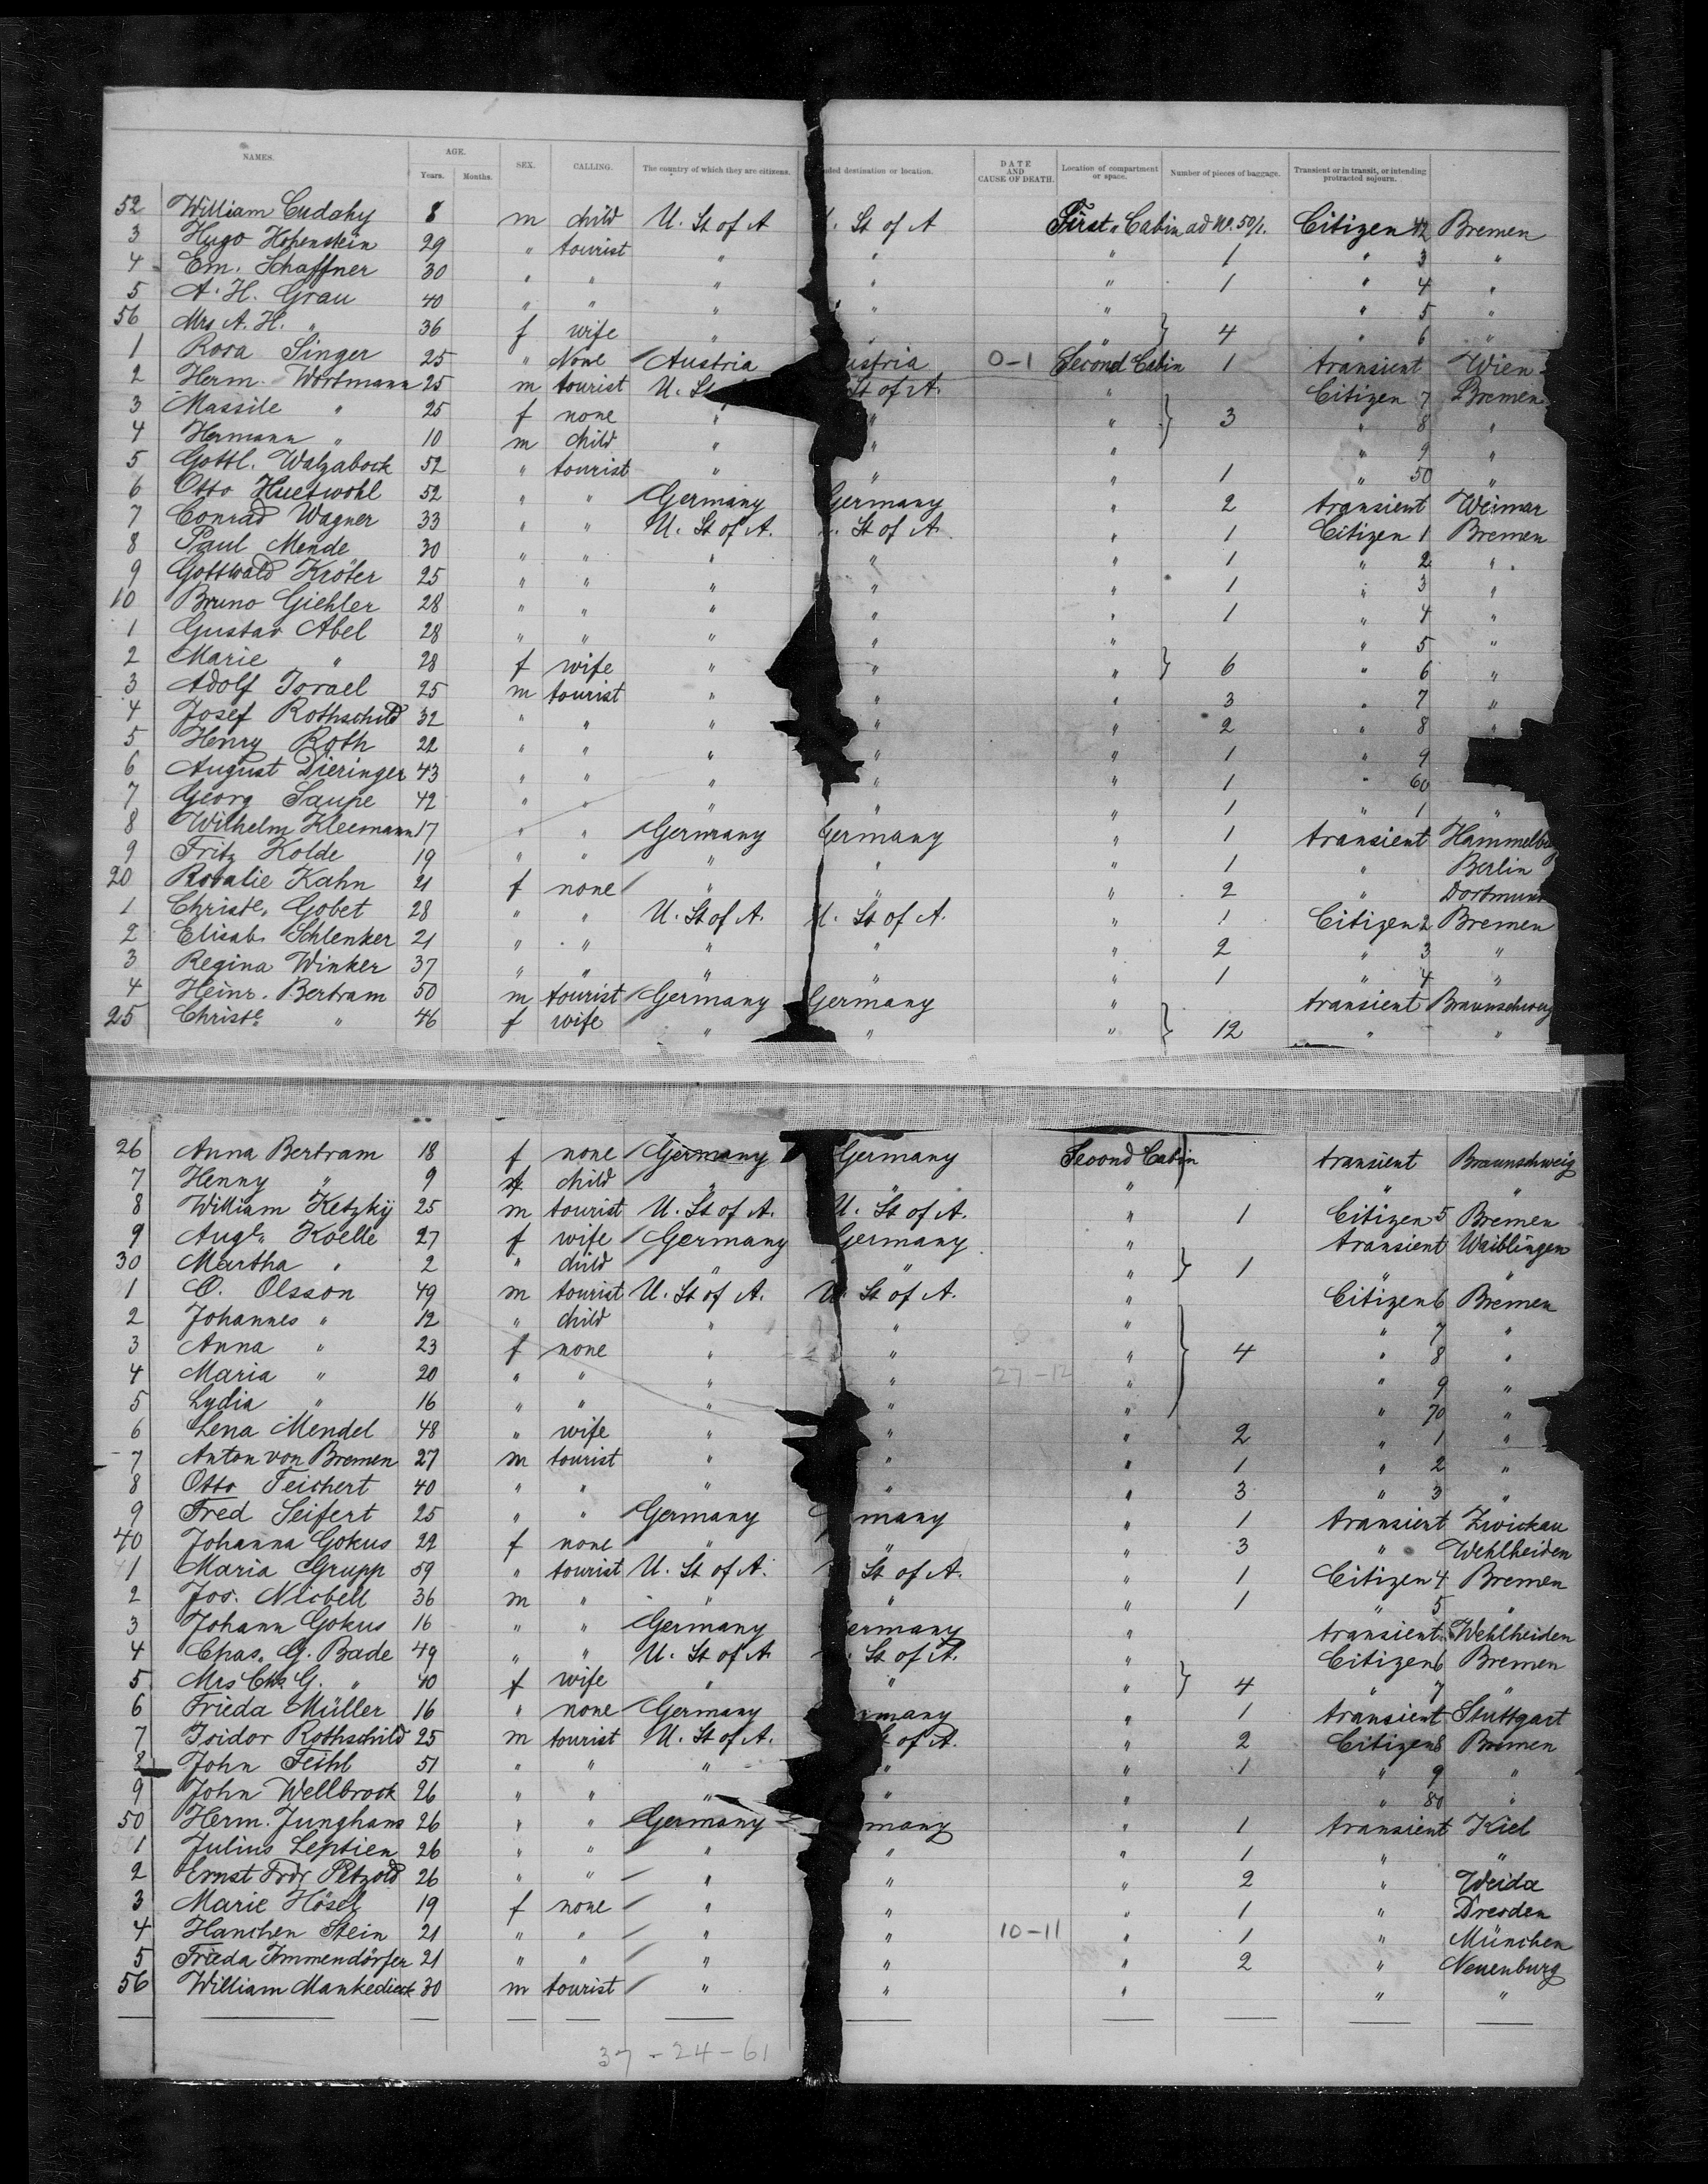 NAMES. AGE. SEX. CALLING. The country of which they are citizens. ded destination or location. DATE AND CAUSE OF DEATH. Location of compartment or space. Number of pieces of baggage. Transient or in transit, or intending protracted sojourn.
Years. Months.
52 William Cudahy 8 m child U. St of A . St of A First " Cabin ad No. 50/1. Citizen 42 Bremen
3 Hugo Hohenstein 29 " tourist " " " 1 " 3 "
4 Em. Schaffner 30 " " " " " 1 " 4 "
5 A. H. Grau 40 " " " " " " 5 "
56 Mrs A. H. " 36 f wife " " " } 4 " 6 "
1 Rosa Singer 25 " None Austria ustria 0-1 Second Cabin 1 transient Wien
2 Herm. Wortmann 25 m tourist U. St St of A. " Citizen 7 Bremen
3 Massile " 25 f none " " " } 3 " 8 "
4 Hermann " 10 m child " " " " 9 "
5 Gottl. Walzabock 52 " tourist " " " 1 " 50 "
6 Otto Huetwohl 52 " " Germany Germany " 2 transient Weimar
7 Conrad Wagner 33 " " U. St of A. . St of A. " 1 Citizen 1 Bremen
8 Paul Mende 30 " " " " " 1 " 2 "
9 Gottwald Kröter 25 " " " " " 1 " 3 "
10 Bruno Giehler 28 " " " " " 1 " 4 "
1 Gustav Abel 28 " " " " " " 5 "
2 Marie " 28 f wife " " " } 6 " 6 "
3 Adolf Israel 25 m tourist " " " 3 " 7 "
4 Josef Rothschild 32 " " " " " 2 " 8 "
5 Henry Roth 22 " " " " " 1 " 9
6 August Dieringer 43 " " " " " 1 " 60
7 Georg Saupe 42 " " " " " 1 " 1 "
8 Wilhelm Kleemann 17 " " Germany Germany " 1 transient Hammelburg
9 Fritz Kolde 19 " " " " " 1 " Berlin
20 Rosalie Kahn 21 f none " " " 2 " Dortmund
1 Christe. Gobet 28 " " U. St of A. U. St of A. " 1 Citizen 2 Bremen
2 Elisab. Schlenker 21 " " " " " 2 " 3 "
3 Regina Winker 37 " " " " " 1 " 4 "
4 Heinr. Bertram 50 m tourist Germany Germany " transient Braunschweig
25 Christe " 46 f wife " " " } 12 " "
26 Anna Bertram 18 f none Germany Germany Second Cabin } transient Braunschweig
7 Henny " 9 f child " " " " "
8 William Ketzkÿ 25 m tourist U. St of A. U. St of A. " 1 Citizen 5 Bremen
9 Augte Koelle 27 f wife Germany Germany " transient Waiblingen
30 Martha " 2 " child " " " } 1 " "
1 O. Olsson 49 m tourist U. St of A. U St of A. " Citizen 6 Bremen
2 Johannes " 12 " child " " " " 7 "
3 Anna " 23 f none " " " } 4 " 8 "
4 Maria " 20 " " " " 27-12 " " 9 "
5 Lydia " 16 " " " " " " 70 "
6 Lena Mendel 48 " wife " " " 2 " 1 "
7 Anton von Bremen 27 m tourist " " " 1 " 2 "
8 Otto Teichert 40 " " " " " 3 " 3 "
9 Fred Seifert 25 " " Germany many " 1 transient Zwickau
40 Johanna Gokus 22 f none " " " 3 " Wehlheiden
1 Maria Grupp 59 " tourist U. St of A. St of A. " 1 Citizen 4 Bremen
2 Jos. Nicbell 36 m " " " " 1 " 5 "
3 Johann Gokus 16 " " Germany ermany " transient Wehlheiden
4 Chas. G. Bade 49 " " U. St of A . St of A. " Citizen 6 Bremen
5 Mrs Chs G. " 40 f wife " " " } 4 " 7 "
6 Frieda Müller 16 " none Germany many " 1 transient Stuttgart
7 Isidor Rothschild 25 m tourist U. St of A. t of A. " 2 Citizen 8 Bremen
8 John Feihl 51 " " " " " 1 " 9 "
9 John Wellbrook 26 " " " " " " 80 "
50 Herm. Junghans 26 " " Germany many " 1 transient Kiel
1 Julius Leptien 26 " " " " " 1 " "
2 Ernst Frdr Petzold 26 " " " " " 2 " Weida
3 Marie Hösel 19 f none " " " 1 " Dresden
4 Hanchen Stein 21 " " " " 10-11 " 1 " München
5 Frieda Immendörfer 21 " " " " " 2 " Neuenburg
56 William Mankedieck 30 m tourist " " " " "
37-24-61